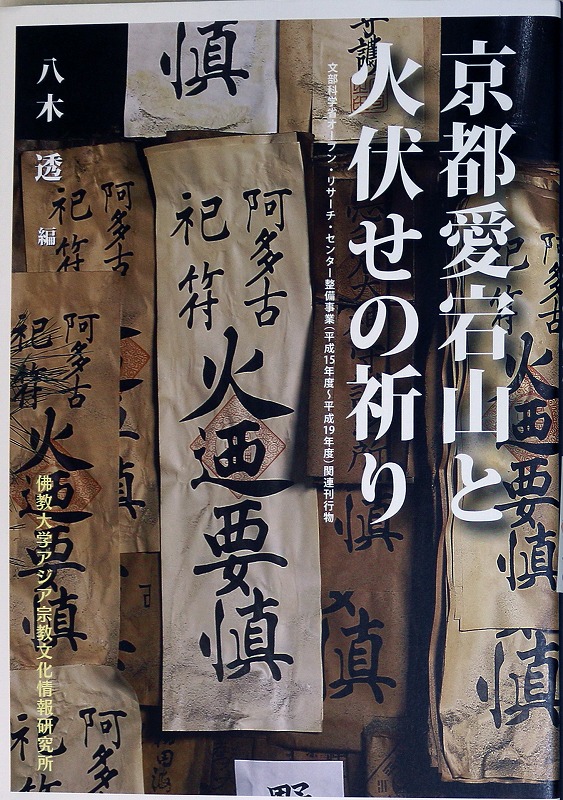 京都愛宕山と
火伏せの祈り
文部科学省オープン・リサーチ・センター整備事業(平成15年度〜平成19年度)関連刊行物
八木 透 編
佛教大学アジア宗教文化情報研究所
阿多古
祀符
火廼要慎
阿多古
祀符
阿多古
祀符
火廼要慎
慎
守護
火廼要慎
慎
慎
慎
阿多
祀
野